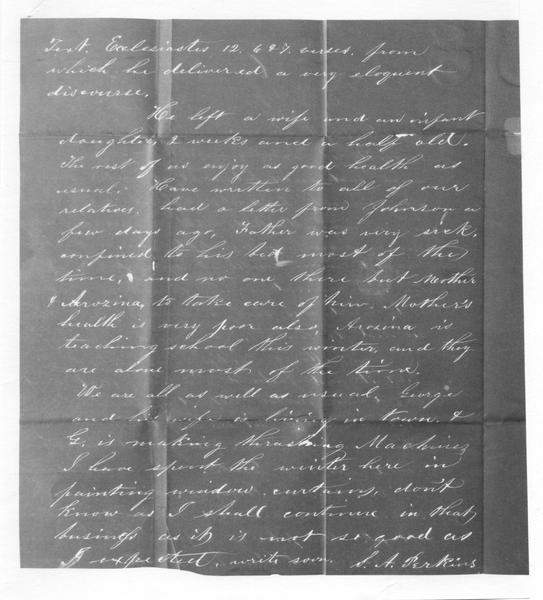 Text, Ecclesiastes 12. 6 & 7. verses. from
which he delivered a very eloquent
discourse.
He left a wife and an infant
daughter 2 weeks and a half old.
The rest of us enjoy as good health as
usual. Have written to all of our
relatives. had a letter from Johnson a
few days ago, Father was very sick,
confined to his bed most of the
time, and no one there but Mother
& Arozina, to take care of him. Mother's
health is very poor also, Arozina is
teaching school this winter, and they
are alone most of the time.
We are all as well as usual, George
and his wife is living in town, &
G. is making thrashing Machines
I have spent the winter here in
painting window curtains, don't
know as I shall continue in that
business as it is not so good as
I expected. write soon. S. A. Perkins